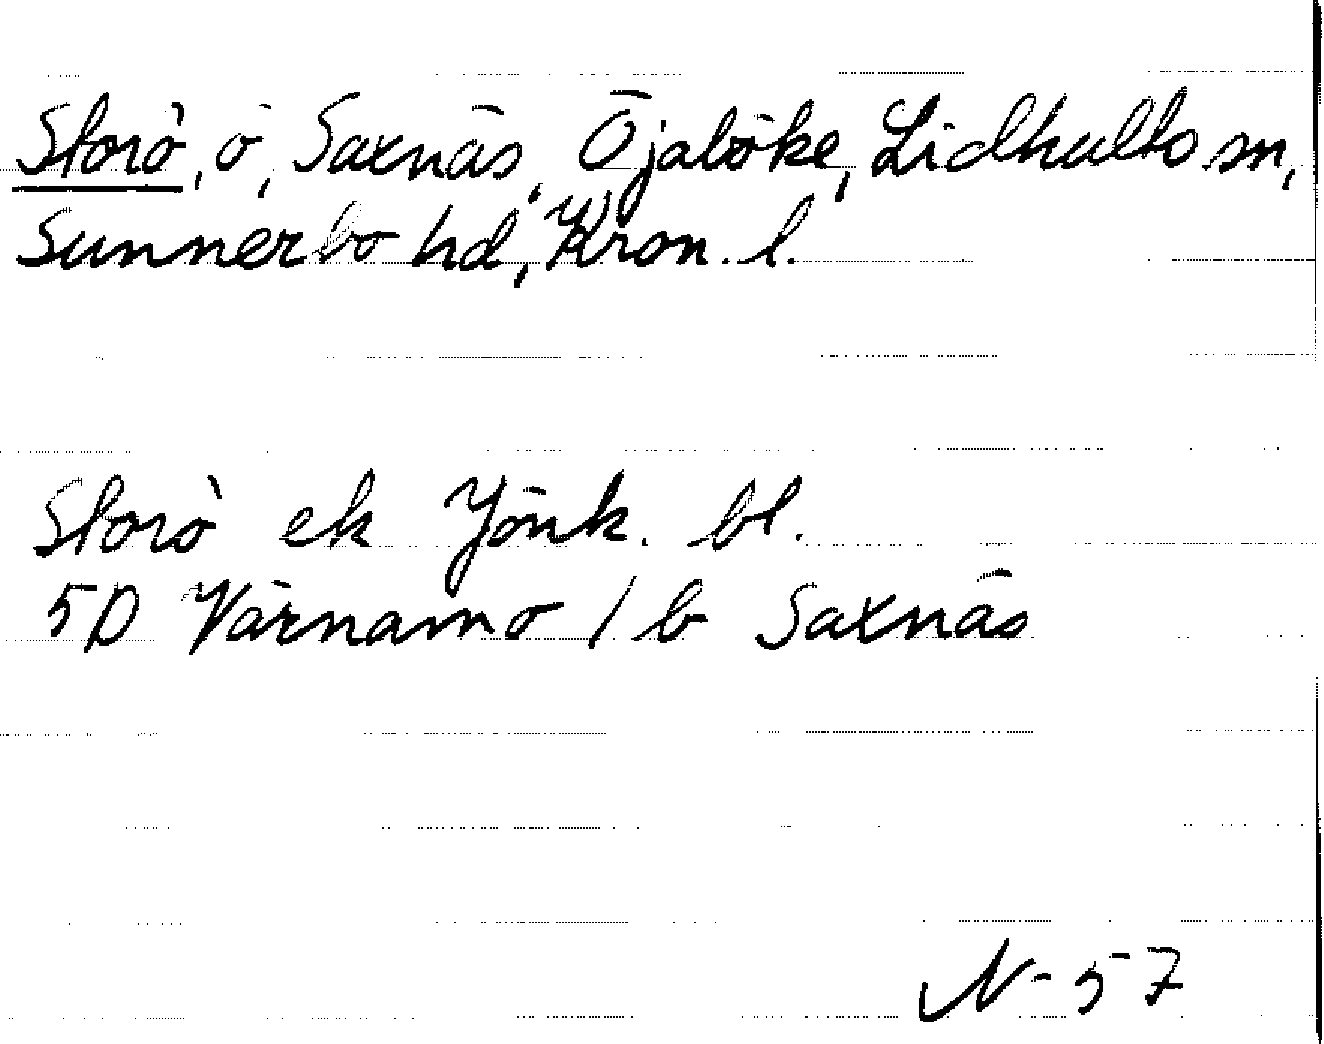 Storö, ö, Saxnäs, Öjaböke, Lidhults sn,
Sunnerbo hd, Kron. l.
Storö ek Jönk. bl.
5D Värnamo / b Saxnäs
N-57